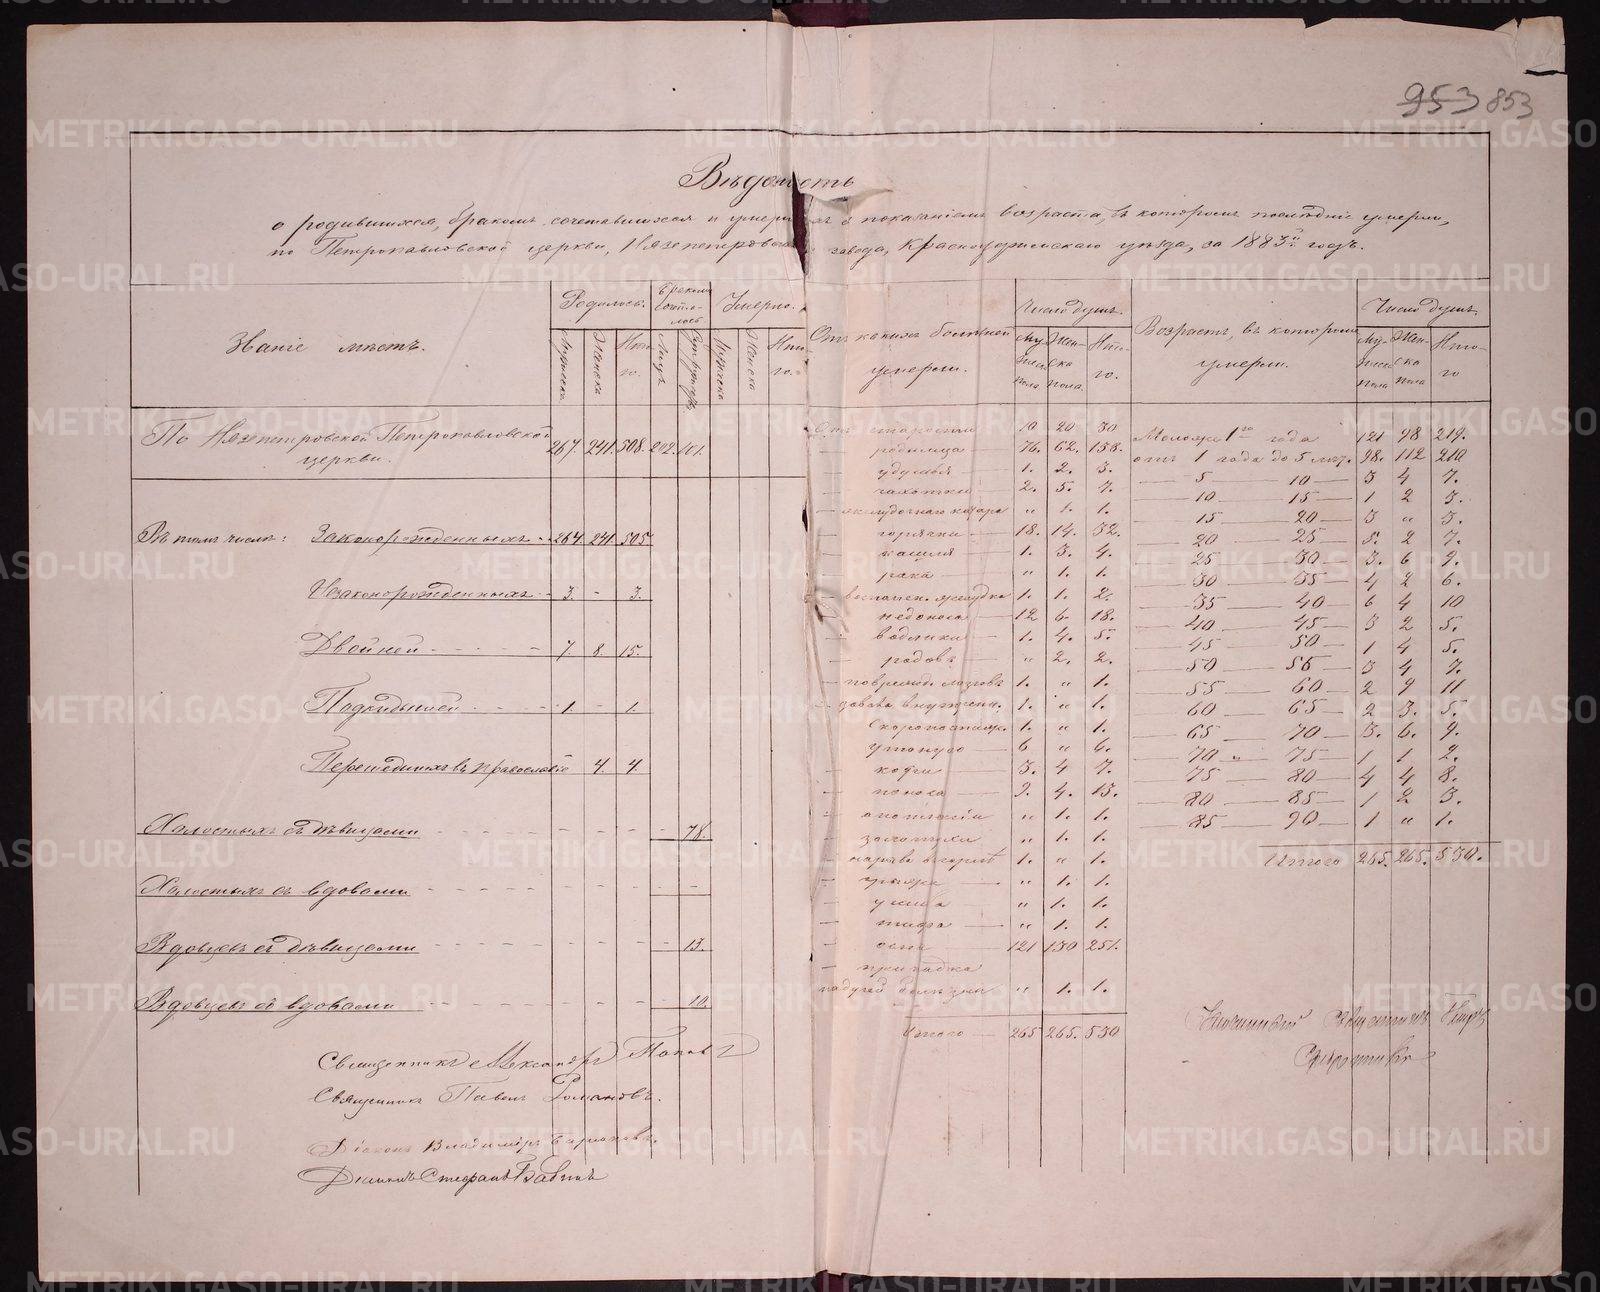 953 853
Вѣдомость
о родившихся, бракомъ сочетавшихся и умершихъ съ показаніемъ возраста, въ которомъ послѣдніе умерли,
по Петропавловской церкви, Нязепетровскаго завода, Красноуфимскаго уѣзда, за 1883й годъ.
Званіе мѣстъ.
Родилось.
Мужеска.
Женска
Ито-
го.
Бракомъ
сочета-
лось
Лицъ
Супружествъ
Умерло.
Мужеска
Женска
Ито-
го.
По Нязепетровской Петропавловской
церкви.
267. 241. 508. 202. 101.
Въ томъ числѣ: Законорожденныхъ 264 241 505
Незаконорожденныхъ 3. - 3.
Двойней 7 8. 15.
Подкидышей 1 - 1.
Перешедшихъ въ православіе 4. 4.
Холостыхъ съ дѣвицами 78.
Холостыхъ съ вдовами -
Вдовцевъ съ дѣвицами 13.
Вдовцевъ съ вдовами 10.
Священникъ Александръ Поповъ
Священникъ Павелъ Романовъ.
Діаконъ Владиміръ
Стефанъ Бабинъ
Отъ какихъ болѣзней
умерли.
Число душъ.
Муж-
ска
пола
Жен-
ска
пола.
Ито-
го.
Отъ старости 10 20 30
— родимца 76. 62. 138.
— удушья 1. 2. 3.
— чахотки 2. 5. 7.
— желудочнаго катара " 1. 1.
— горячки 18. 14. 32.
— кашля 1. 3. 4.
— рака " 1. 1.
— воспален. желудка 1. 1. 2.
— недоноса 12 6. 18.
— водянки 1. 4. 5.
— родовъ " 2. 2.
1. " 1.
1. " 1.
Скоропостижн. 1. " 1.
утонуло 6 " 6.
— 3. 4 7.
— поноса 9. 4. 13.
— " 1. 1.
— золотухи " 1. 1.
— нарыва въ горлѣ 1. " 1.
— " 1. 1.
— " 1. 1.
— тифа " 1. 1.
— оспы 121 130 251.
— припадка
падучей болѣзни " 1. 1.
Итого 265 265. 530
Возрастъ, въ которомъ
умерли.
Число душъ.
Му-
жска
пола
Жен-
ска
пола
Ито-
го
Моложе 1го года 121 98 219.
отъ 1 года до 5 лѣтъ. 98. 112 210
5 — 10 — 3 4 7.
10 15 — 1 2 3.
15 20 — 3 " 3.
20 25 — 5. 2 7.
25 30 — 3. 6 9.
30 35 — 4 2 6.
35 40 — 6 4 10
40 45 — 3 2 5.
45 50 — 1 4 5.
50 55 — 3 4 7.
55 60 — 2 9 11
60 65 — 2 3. 5.
65 70 — 3. 6. 9.
70 75 — 1 1 2.
75 80 — 4 4 8.
80 85 — 1 2 3.
85 90 — 1 " 1.
Итого 265. 265. 530.
Священникъ Петръ
METRIKI.GASO-URAL.RU